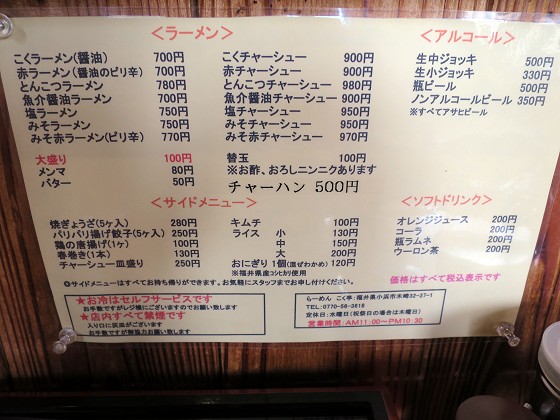 ＜ラーメン＞
こくラーメン(醤油) 700円
赤ラーメン(醤油のピリ辛) 700円
とんこつラーメン 780円
魚介醤油ラーメン 750円
塩ラーメン 750円
みそラーメン 750円
みそ赤ラーメン(ピリ辛) 770円
大盛り 100円
メンマ 80円
バター 50円
こくチャーシュー 900円
赤チャーシュー 900円
とんこつチャーシュー 980円
魚介醤油チャーシュー 950円
塩チャーシュー 950円
みそチャーシュー 950円
みそ赤チャーシュー 970円
替玉 100円
※お酢、おろしニンニクあります
チャーハン 500円
＜アルコール＞
生中ジョッキ 500円
生小ジョッキ 330円
瓶ビール 500円
ノンアルコールビール 350円
※すべてアサヒビール
＜サイドメニュー＞
焼ぎょうざ(5ヶ入) 280円
パリパリ揚げ餃子(5ヶ入) 250円
鶏の唐揚げ(1ヶ) 100円
春巻き(1本) 130円
チャーシュー皿盛り 250円
キムチ 100円
ライス 小 130円
中 150円
大 200円
おにぎり 1個(混ぜわかめ) 120円
※福井県産コシヒカリ使用
◎サイドメニューはすべてお持ち帰りができます。お気軽にスタッフまでお申し付けください。
＜ソフトドリンク＞
オレンジジュース 200円
コーラ 200円
瓶ラムネ 200円
ウーロン茶 200円
価格はすべて税込表示です
★お冷はセルフサービスです
お手数ですがレジ横にございますのでお願い致します
★店内すべて禁煙です
入り口に灰皿がございます
お手数ですが御協力お願い致します
らーめん こく亭:福井県小浜市木崎32-37-1
TEL:0770-56-3618
定休日:水曜日(祝祭日の場合は木曜日)
営業時間:AM11:00～PM10:30